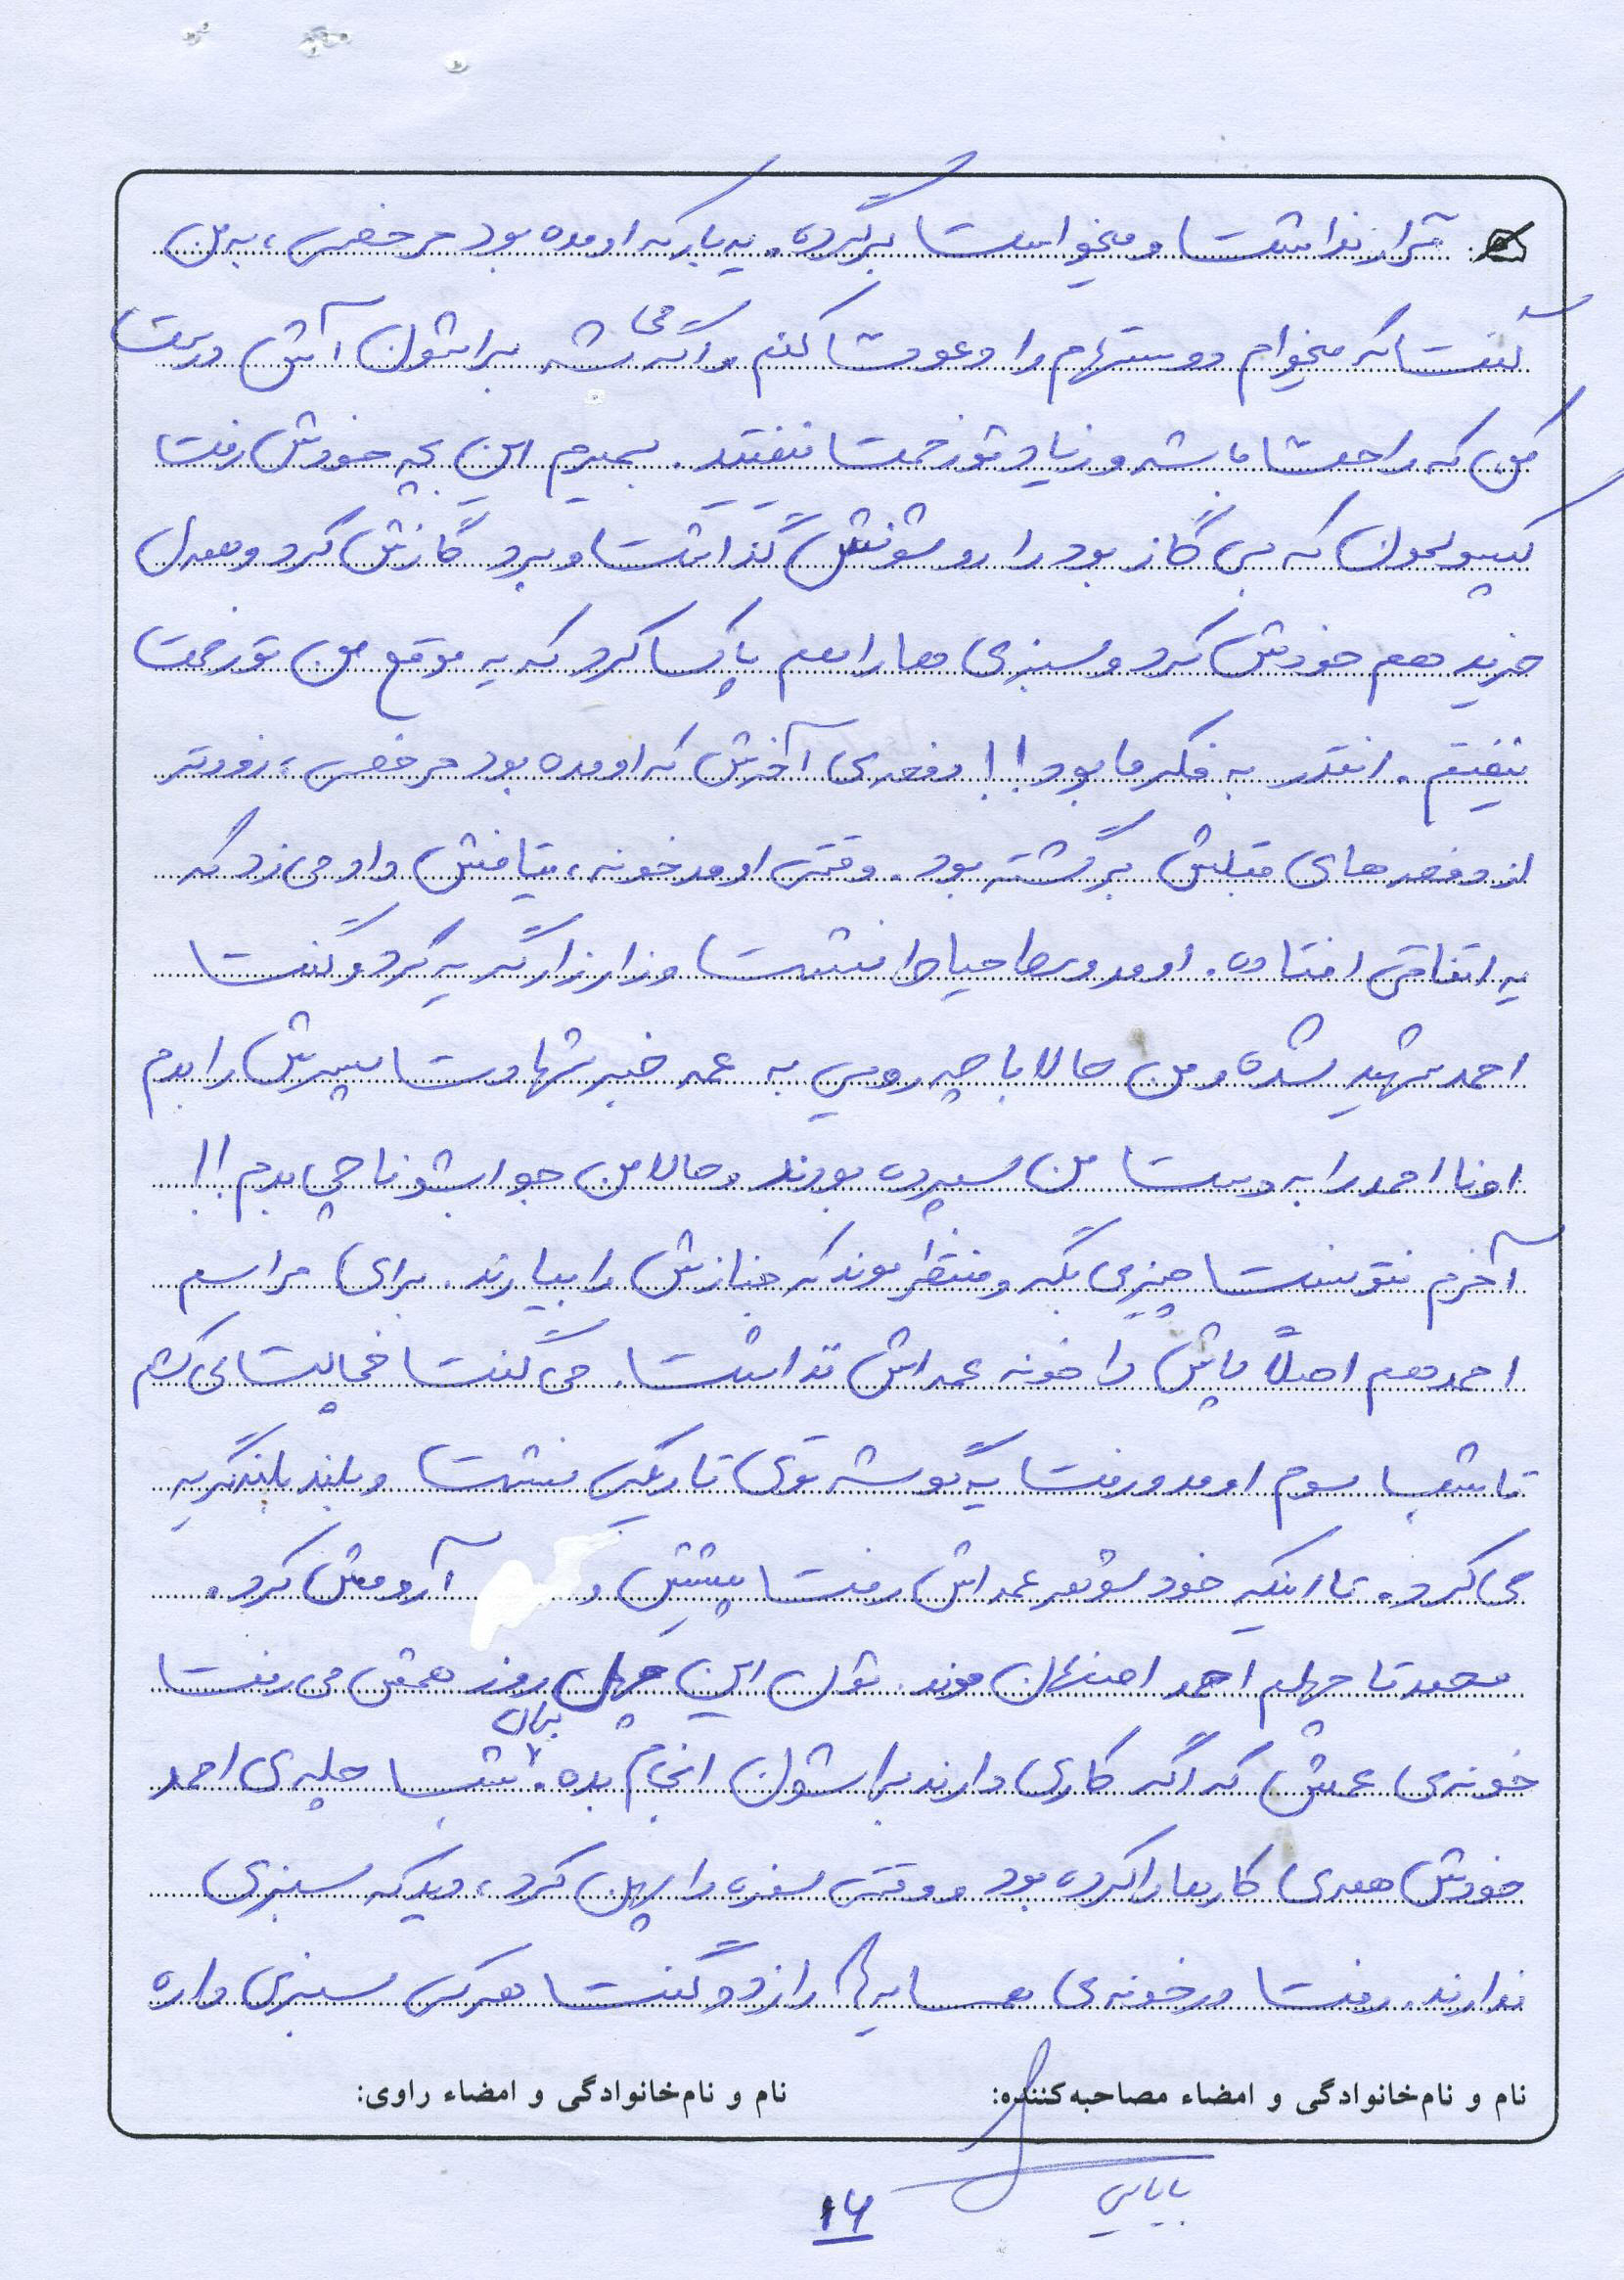 قرار نداشت و میخواست برگرده. یه بار که اومده بود مرخصی، به من
گفت که میخوام دوستهام را دعوت کنم و اگه می شه براشون آش درست
کن که راحت باشه و زیاد تو زحمت نیفتید. بمیرم این بچه خودش رفت
کپسولمون که بی گاز بود را رو شونش گذاشت و برد گازش کرد و همه‌ی
خرید هم خودش کرد و سبزی ها را هم پاک کرد که یه موقع من تو زحمت
نیفتم. انقدر به فکر ما بود!! دفعه‌ی آخرش که اومده بود مرخصی، زودتر
از دفعه‌های قبلش برگشته بود. وقتی اومد خونه، قیافش داد می زد که
یه اتفاقی افتاده. اومد وسط حیاط نشست و زار زار گریه کرد و گفت
احمد شهید شده و من حالا با چه رویی به عمه خبر شهادت پسرش را بدم
اونا احمد را به دست من سپرده بودند و حالا من جواب اونا چی بدم!!
آخرم نتونست چیزی بگه و منتظر موند که جنازش را بیارند. برای مراسم
احمد هم اصلاً پاش را خونه عمه‌اش نذاشت. می گفت خجالت می کشم
تا شب سوم اومد و رفت یه گوشه توی تاریکی نشست و بلند بلند گریه
می کرد. تا اینکه خود شوهر عمه‌اش رفت پیشش و آرومش کرد.
محمد تا چهلم احمد اصفهان موند. توی این چهل روز همش می رفت
خونه‌ی عمش که اگه کاری دارند براشون انجام بده. برای شب چله‌ی احمد
خودش همه‌ی کارها را کرده بود و وقتی سفره را پهن کرد، دید که سبزی
ندارند. رفت در خونه‌ی همسایه‌ها را زد و گفت هر کی سبزی داره
نام و نام‌خانوادگی و امضاء مصاحبه‌کننده: نام و نام‌خانوادگی و امضاء راوی:
بابایی
۱۶